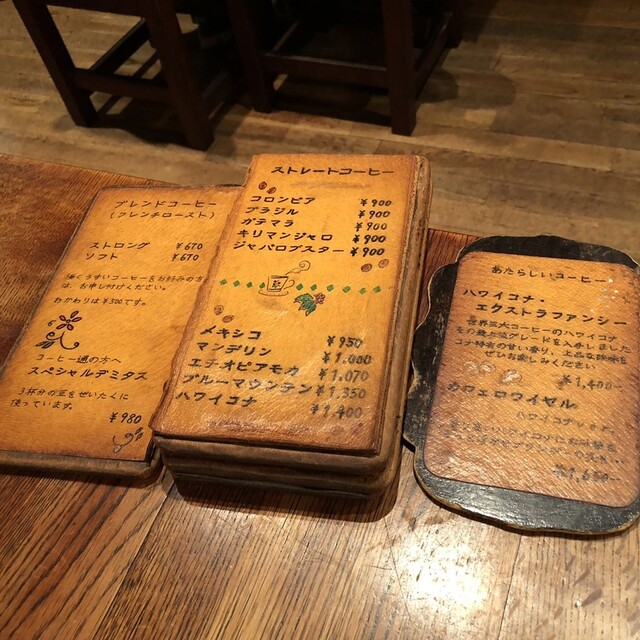 ブレンドコーヒー
(フレンチロースト)
ストロング ¥670
ソフト ¥670
薄くうすいコーヒーをお好みの方
は、お申し付けください。
おかわりは¥300です。
コーヒー通の方へ
スペシャルデミタス
3杯分の豆をぜいたくに
使っています。
¥980
ストレートコーヒー
コロンビア ¥900
ブラジル ¥900
ガテマラ ¥900
キリマンジャロ ¥900
ジャバロブスター ¥900
メキシコ ¥950
マンデリン ¥1,000
エチオピアモカ ¥1,070
ブルーマウンテン ¥1,350
ハワイコナ ¥1,400
あたらしいコーヒー
ハワイコナ・
エクストラファンシー
世界三大コーヒーのハワイコナ
の最高級グレードを入手しました
コナ特有の甘い香り、上品な酸味を
ぜひお楽しみください
¥1,400-
カウェロワイゼル